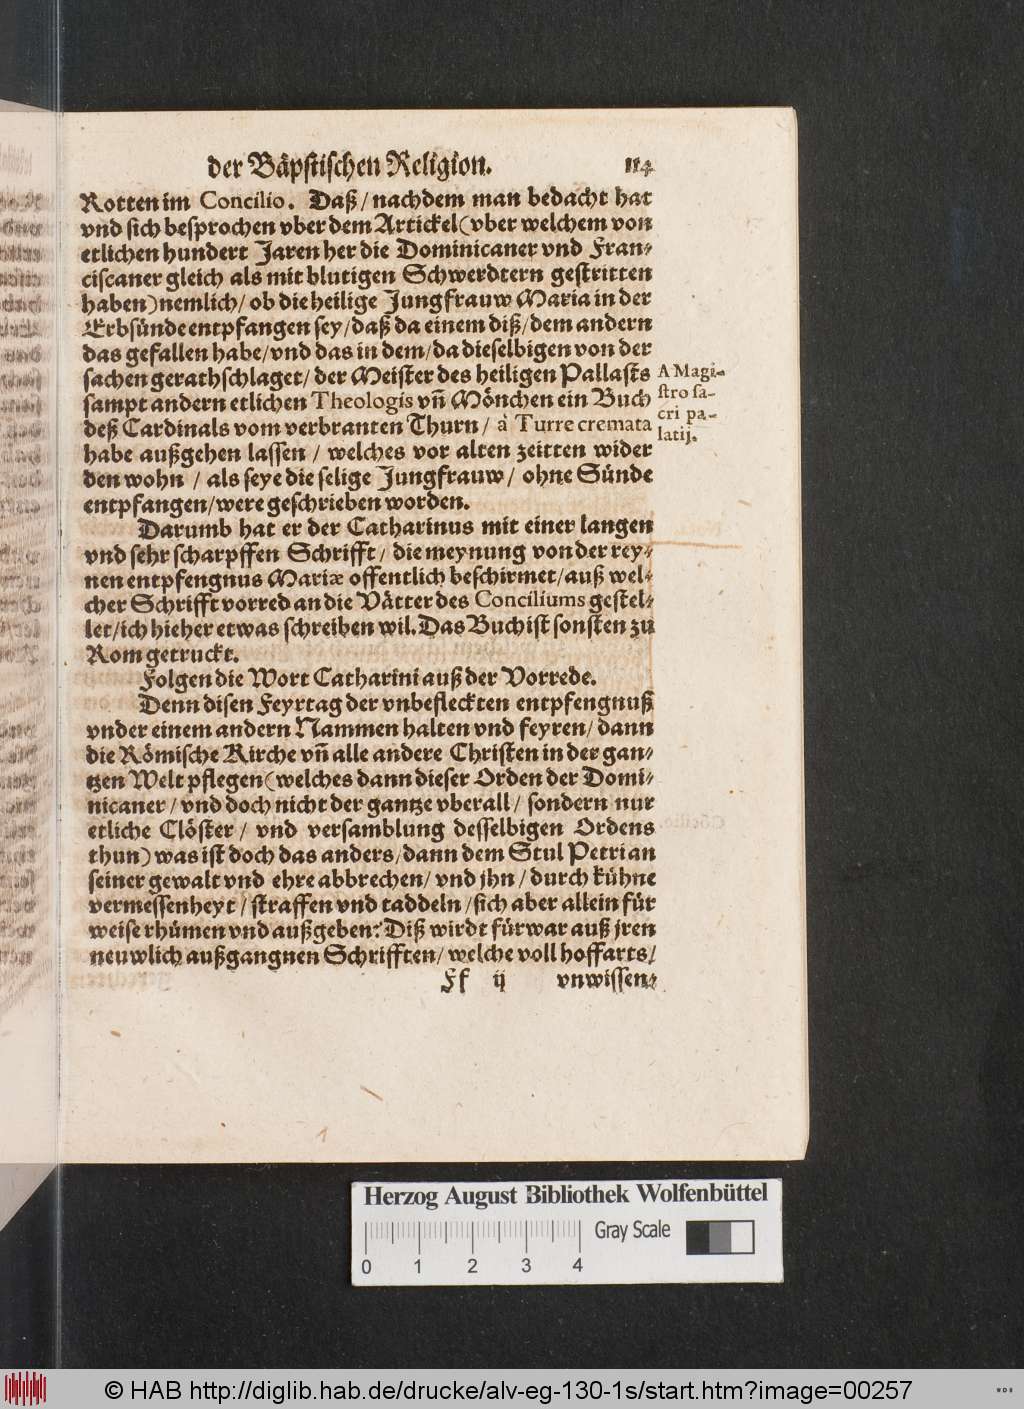 der Bäpstischen Religion. 114
Rotten im Concilio. Daß/ nachdem man bedacht hat
vnd sich besprochen vber dem Artickel (vber welchem von
etlichen hundert Jaren her die Dominicaner vnd Fran-
ciscaner gleich als mit blutigen Schwerdtern gestritten
haben) nemlich/ ob die heilige Jungfrauw Maria in der
Erbsünde entpfangen sey/ daß da einem diß/ dem andern
das gefallen habe/ vnd das in dem/ da dieselbigen von der
sachen gerathschlaget/ der Meister des heiligen Pallasts
sampt andern etlichen Theologis vñ Mönchen ein Buch
deß Cardinals vom verbranten Thurn/ à Turre cremata
habe außgehen lassen/ welches vor alten zeitten wider
den wohn/ als seye die selige Jungfrauw/ ohne Sünde
entpfangen/ were geschrieben worden.
A Magi-
stro sa-
cri pa-
latij.
Darumb hat er der Catharinus mit einer langen
vnd sehr scharpffen Schrifft/ die meynung von der rey-
nen entpfengnus Mariæ offentlich beschirmet/ auß wel-
cher Schrifft vorred an die Vätter des Conciliums gestel-
let/ ich hieher etwas schreiben wil. Das Buch ist sonsten zu
Rom getruckt.
Folgen die Wort Catharini auß der Vorrede.
Denn disen Feyrtag der vnbefleckten entpfengnuß
vnder einem andern Nammen halten vnd feyren/ dann
die Römische Kirche vñ alle andere Christen in der gan-
tzen Welt pflegen (welches dann dieser Orden der Domi-
nicaner/ vnd doch nicht der gantze vberall/ sondern nur
etliche Clöster/ vnd versamblung desselbigen Ordens
thun) was ist doch das anders/ dann dem Stul Petri an
seiner gewalt vnd ehre abbrechen/ vnd jhn/ durch kühne
vermessenheyt/ straffen vnd taddeln/ sich aber allein für
weise rhümen vnd außgeben? Diß wirdt fürwar auß jren
neuwlich außgangnen Schrifften/ welche voll hoffarts/
Ff ij vnwissen-
Herzog August Bibliothek Wolfenbüttel
Gray Scale
0 1 2 3 4
© HAB http://diglib.hab.de/drucke/alv-eg-130-1s/start.htm?image=00257